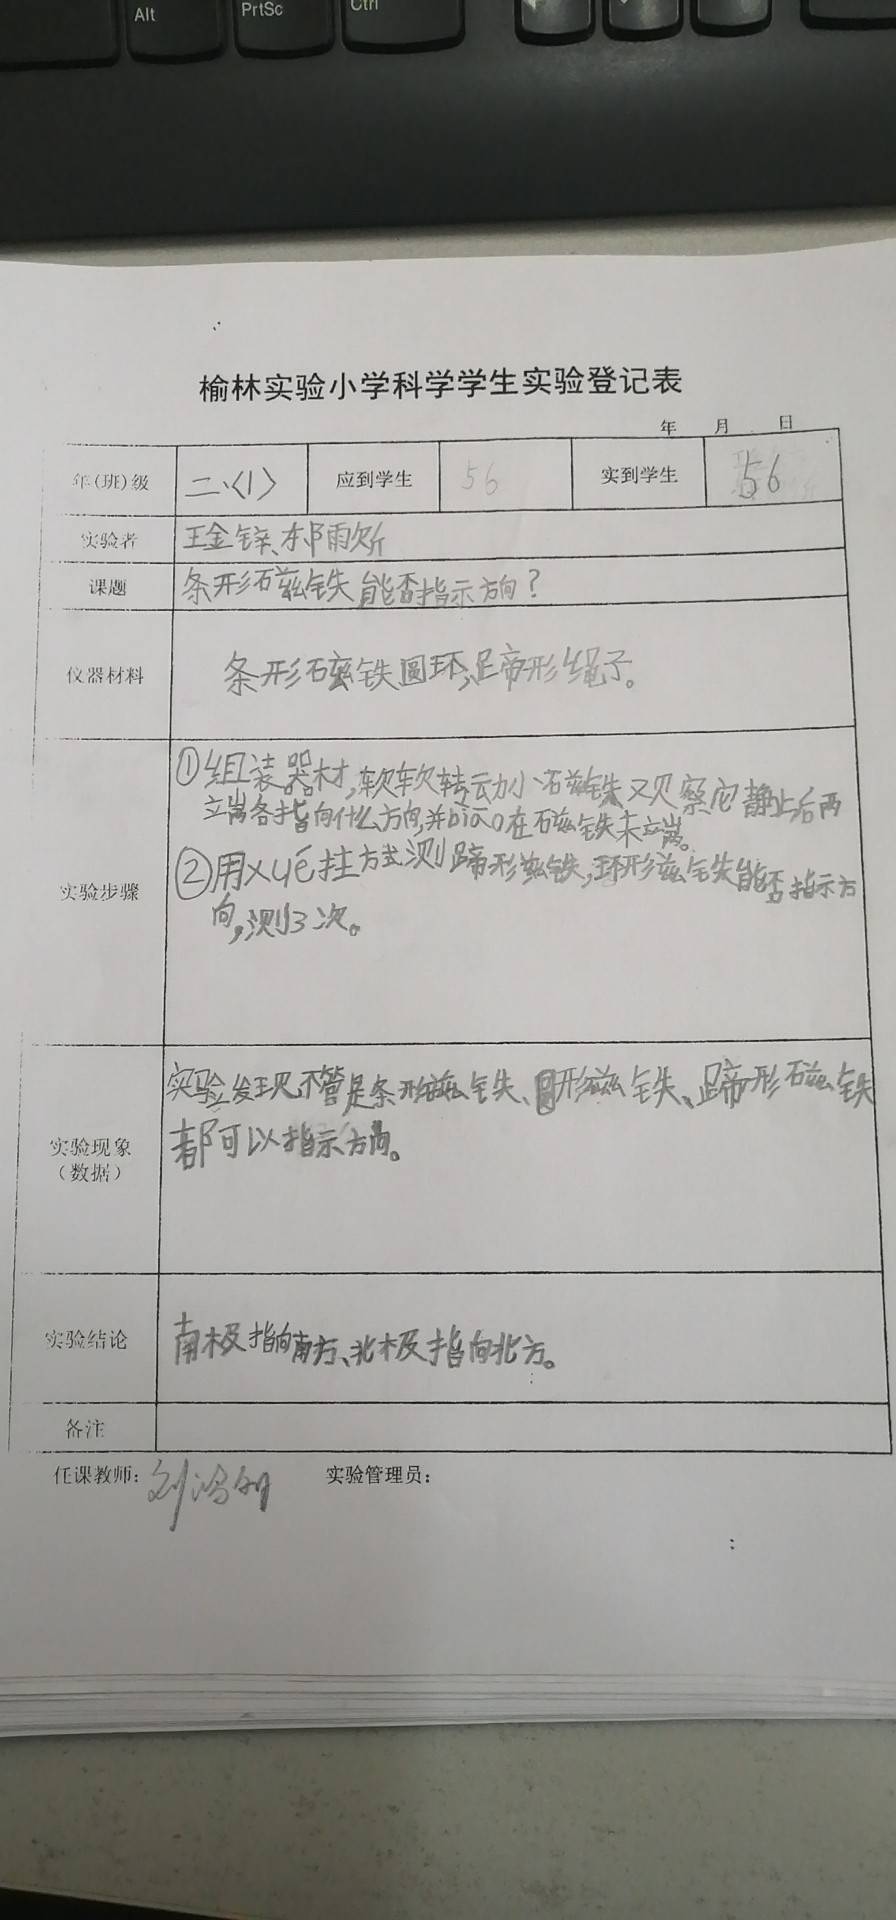 Alt
PrtSc
Ctrl
榆林实验小学科学学生实验登记表
年 月 日
年(班)级 二、〈1〉 应到学生 56 实到学生 56
实验者 王金锌、邬雨欣
课题 条形磁铁能否指示方向？
仪器材料 条形磁铁圆环,蹄形绳子。
实验步骤
①组装器材,软软转动小磁铁观察它静止后两
端各指向什么方向,并biāo在磁铁末端。
②用xuē挂方式测蹄形磁铁,环形磁铁能否指示方
向,测3次。
实验现象
（数据）
实验发现不管是条形磁铁、圆形磁铁、蹄形磁铁
都可以指示方向。
实验结论 南极指向南方、北极指向北方。
备注
任课教师: 实验管理员: